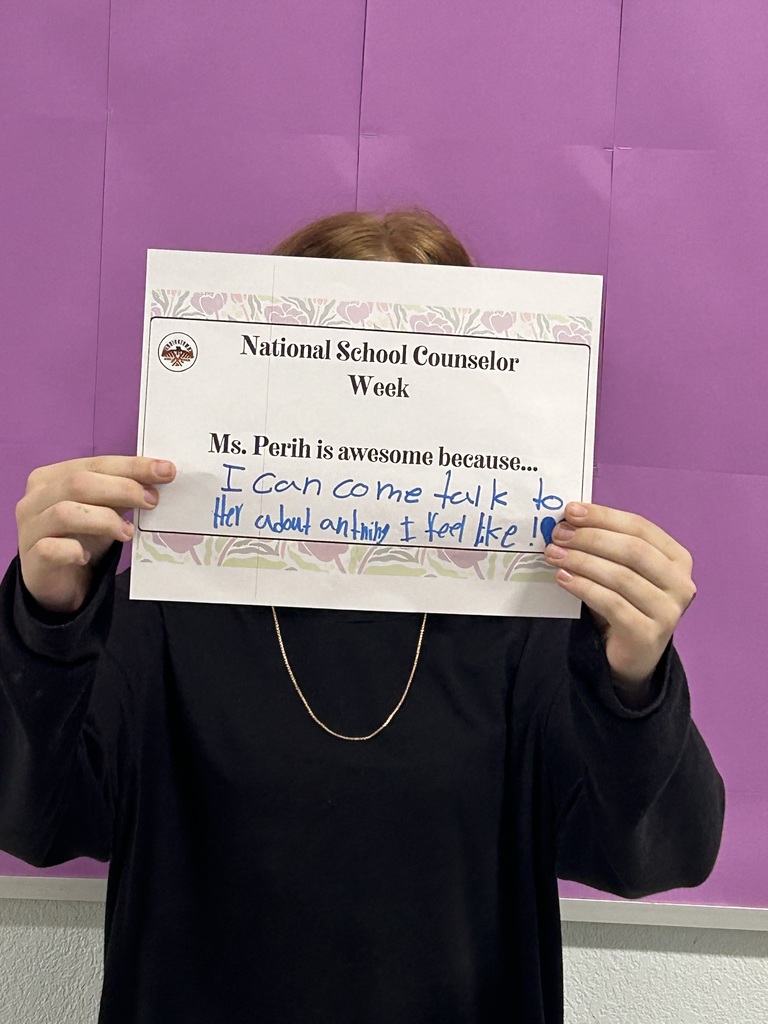 National School Counselor
Week
Ms. Perih is awesome because...
I can come talk to
Her adout anthing I feel like !